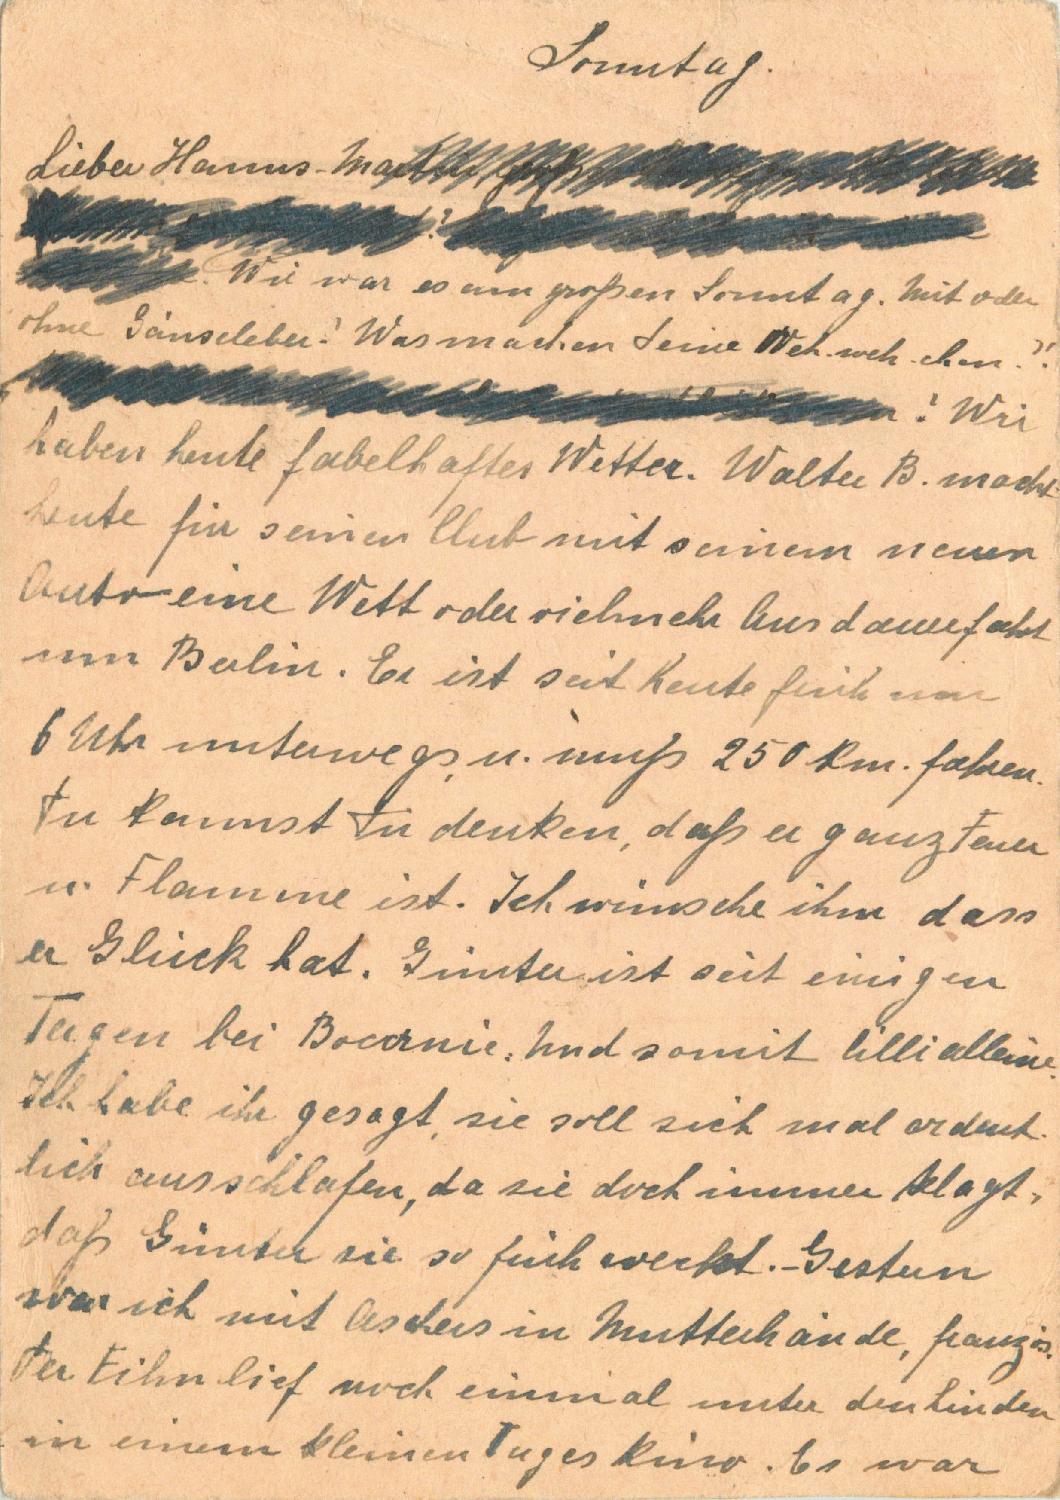 Sonntag.
Lieber Hanns-Martin
Wie war es am großen Sonntag. Mit oder
ohne Gänseleber? Was machen Deine Weh-weh-chen.?!
! Wir
haben heute fabelhaftes Wetter. Walter B. macht
heute für seinen Club mit seinem neuen
Auto eine Wett oder vielmehr Ausdauerfahrt
um Berlin. Er ist seit heute früh um
6 Uhr unterwegs u. muß 250 km. fahren.
Du kannst Dir denken, daß er ganz Feuer
u. Flamme ist. Ich wünsche ihm dass
er Glück hat. Günter ist seit einigen
Tagen bei Und somit Lilli alleine.
Ich habe ihr gesagt, sie soll sich mal ordent-
lich ausschlafen, da sie doch immer klagt,
daß Günter sie so früh weckt. - Gestern
war ich mit Aschers in Mutterhände, französ.
Der Film lief noch einmal unter den Linden
in einem kleinen Tageskino. Es war